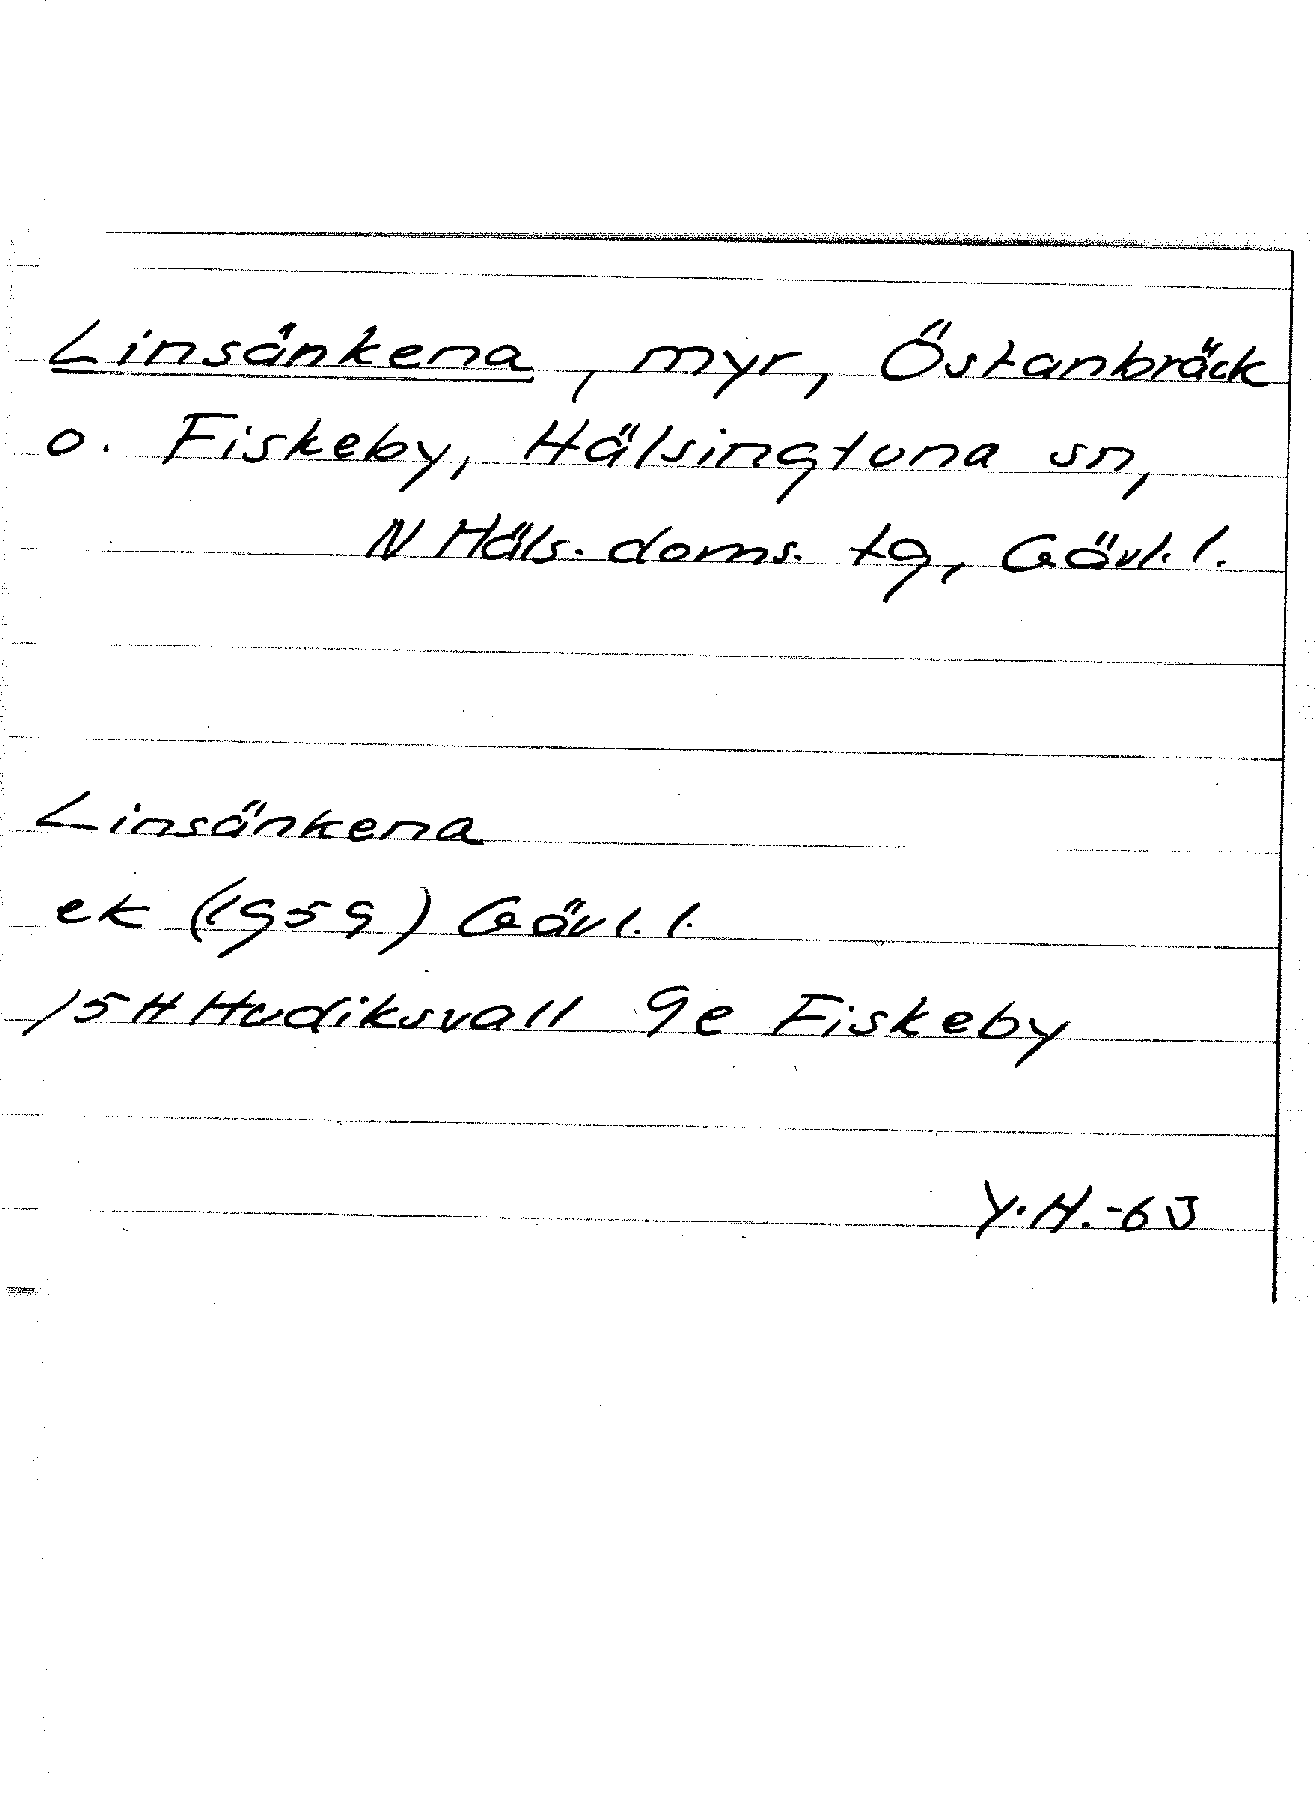 Linsänkena, myr, Östanbräck
o. Fiskeby, Hälsingtuna sn,
N Häls. doms. tg, Gävl. l.
Linsänkena
ek (1959) Gävl. l.
15H Hudiksvall 9e Fiskeby
Y.H.-63